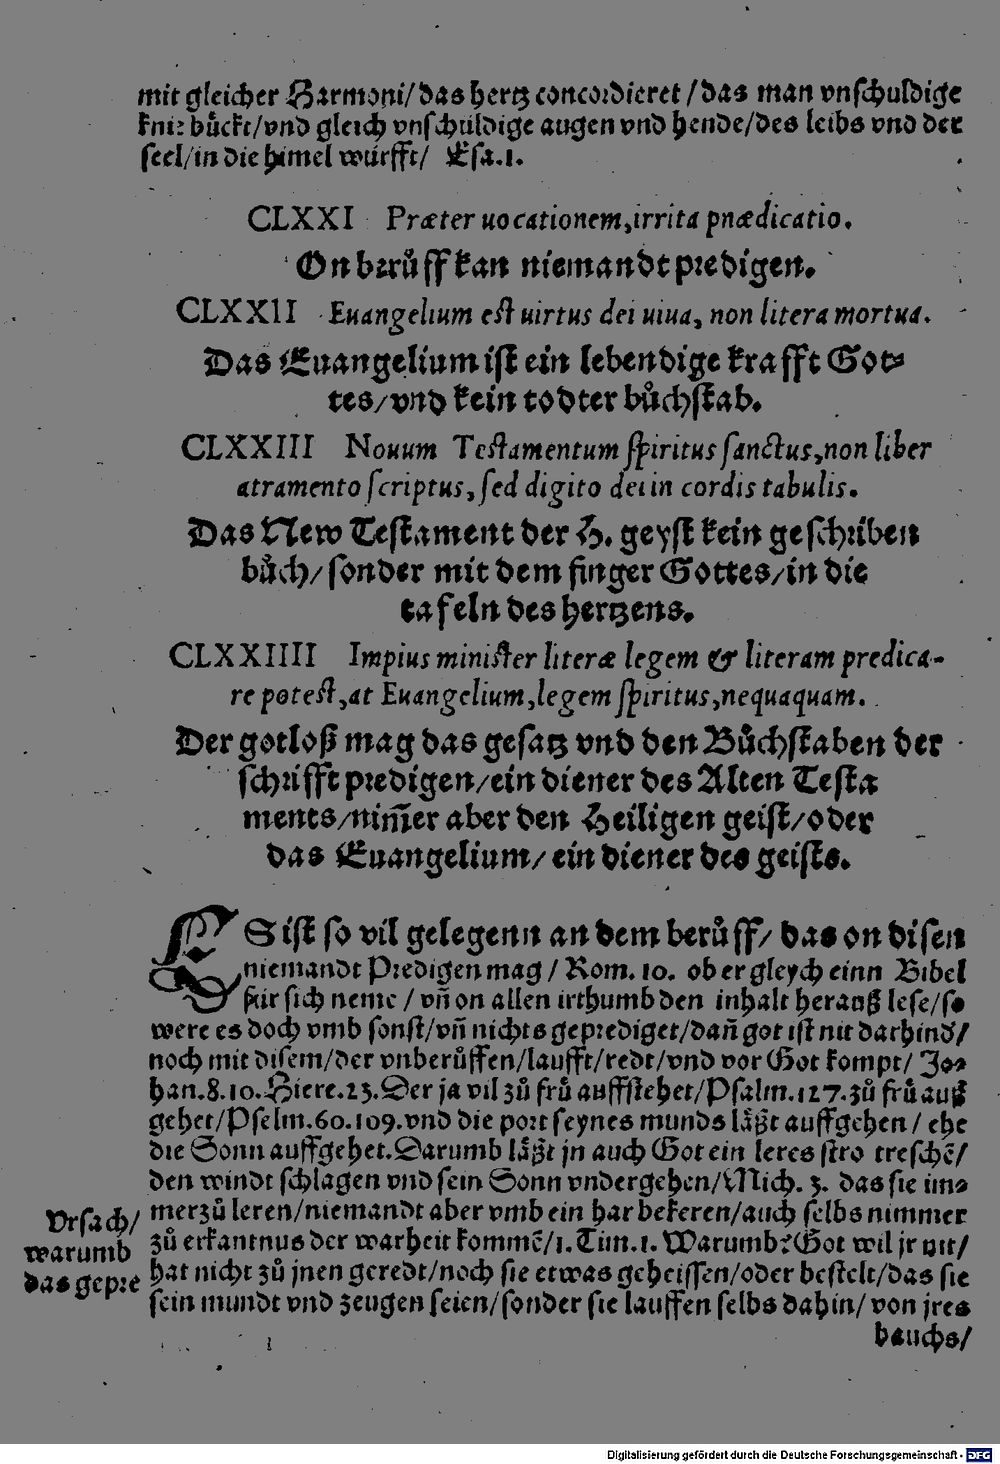 mit gleicher Harmoni/das hertz concordieret/das man vnschuldige
knie bůckt/vnd gleich vnschuldige augen vnd hende/des leibs vnd der
seel/in die himel würfft/ Esa.1.
CLXXI Præter uocationem,irrita prædicatio.
On berůff kan niemandt predigen.
CLXXII Euangelium est uirtus dei uiua, non litera mortua.
Das Euangelium ist ein lebendige krafft Got⸗
tes/vnd kein todter bůchstab.
CLXXIII Nouum Testamentum spiritus sanctus,non liber
atramento scriptus, sed digito dei in cordis tabulis.
Das New Testament der H. geyst kein geschriben
bůch/sonder mit dem finger Gottes/in die
tafeln des hertzens.
CLXXIIII Impius minister literæ legem & literam predica-
re potest,at Euangelium,legem spiritus,nequaquam.
Der gotloß mag das gesatz vnd den Bůchstaben der
schrifft predigen/ein diener des Alten Testa
ments/nim̄er aber den Heiligen geist/oder
das Euangelium/ein diener des geists.
ES ist so vil gelegenn an dem berůff/das on disen
niemandt Predigen mag/Rom. 10. ob er gleych einn Bibel
für sich neme/vn̄ on allen irthumb den inhalt herauß lese/so
were es doch vmb sonst/vn̄ nichts geprediget/dan̄ got ist nit darhind/
noch mit disem/der vnberůffen/laufft/redt/vnd vor Got kompt/ Jo⸗
han.8.10.Hiere.23.Der ja vil zů frů auffstehet/Psalm.127.zů frů auß
gehet/Pselm.60.109.vnd die port seynes munds läßt auffgehen/ehe
die Sonn auffgehet.Darumb läßt jn auch Got ein leres stro treschē/
den windt schlagen vnd sein Sonn vndergehen/Mich. 3. das sie im⸗
merzů leren/niemandt aber vmb ein har bekeren/auch selbs nimmer
zů erkantnus der warheit kommē/1. Tim.1. Warumb?Got wil jr nit/
hat nicht zů jnen geredt/noch sie etwas geheissen/oder bestelt/das sie
sein mundt vnd zeugen seien/sonder sie lauffen selbs dahin/von jres
bauchs/
Vrsach/
warumb
das gepre
Digitalisierung gefördert durch die Deutsche Forschungsgemeinschaft - DFG